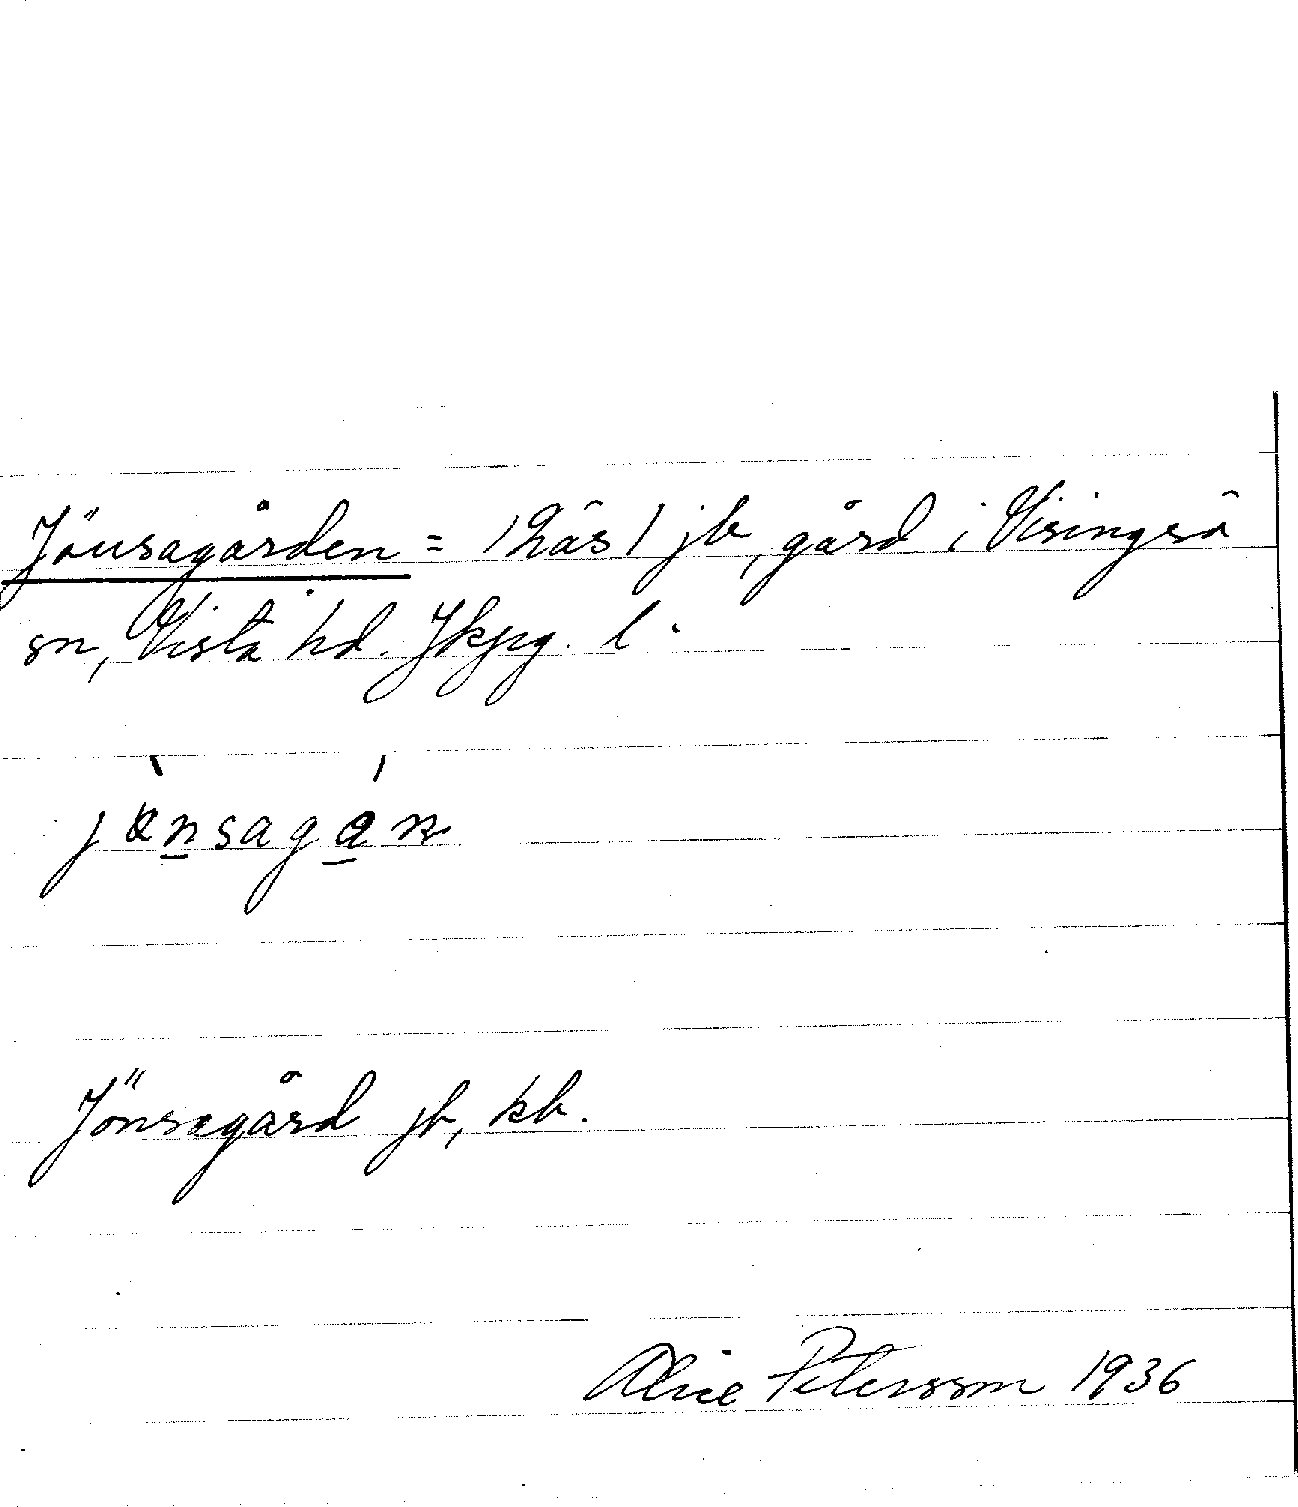 Jönsagården = Näs 1 jb, gård i Visingsö
sn, Vista hd. Jkpg. l.
Jönsagård jb, kb.
Alice Petersson 1936